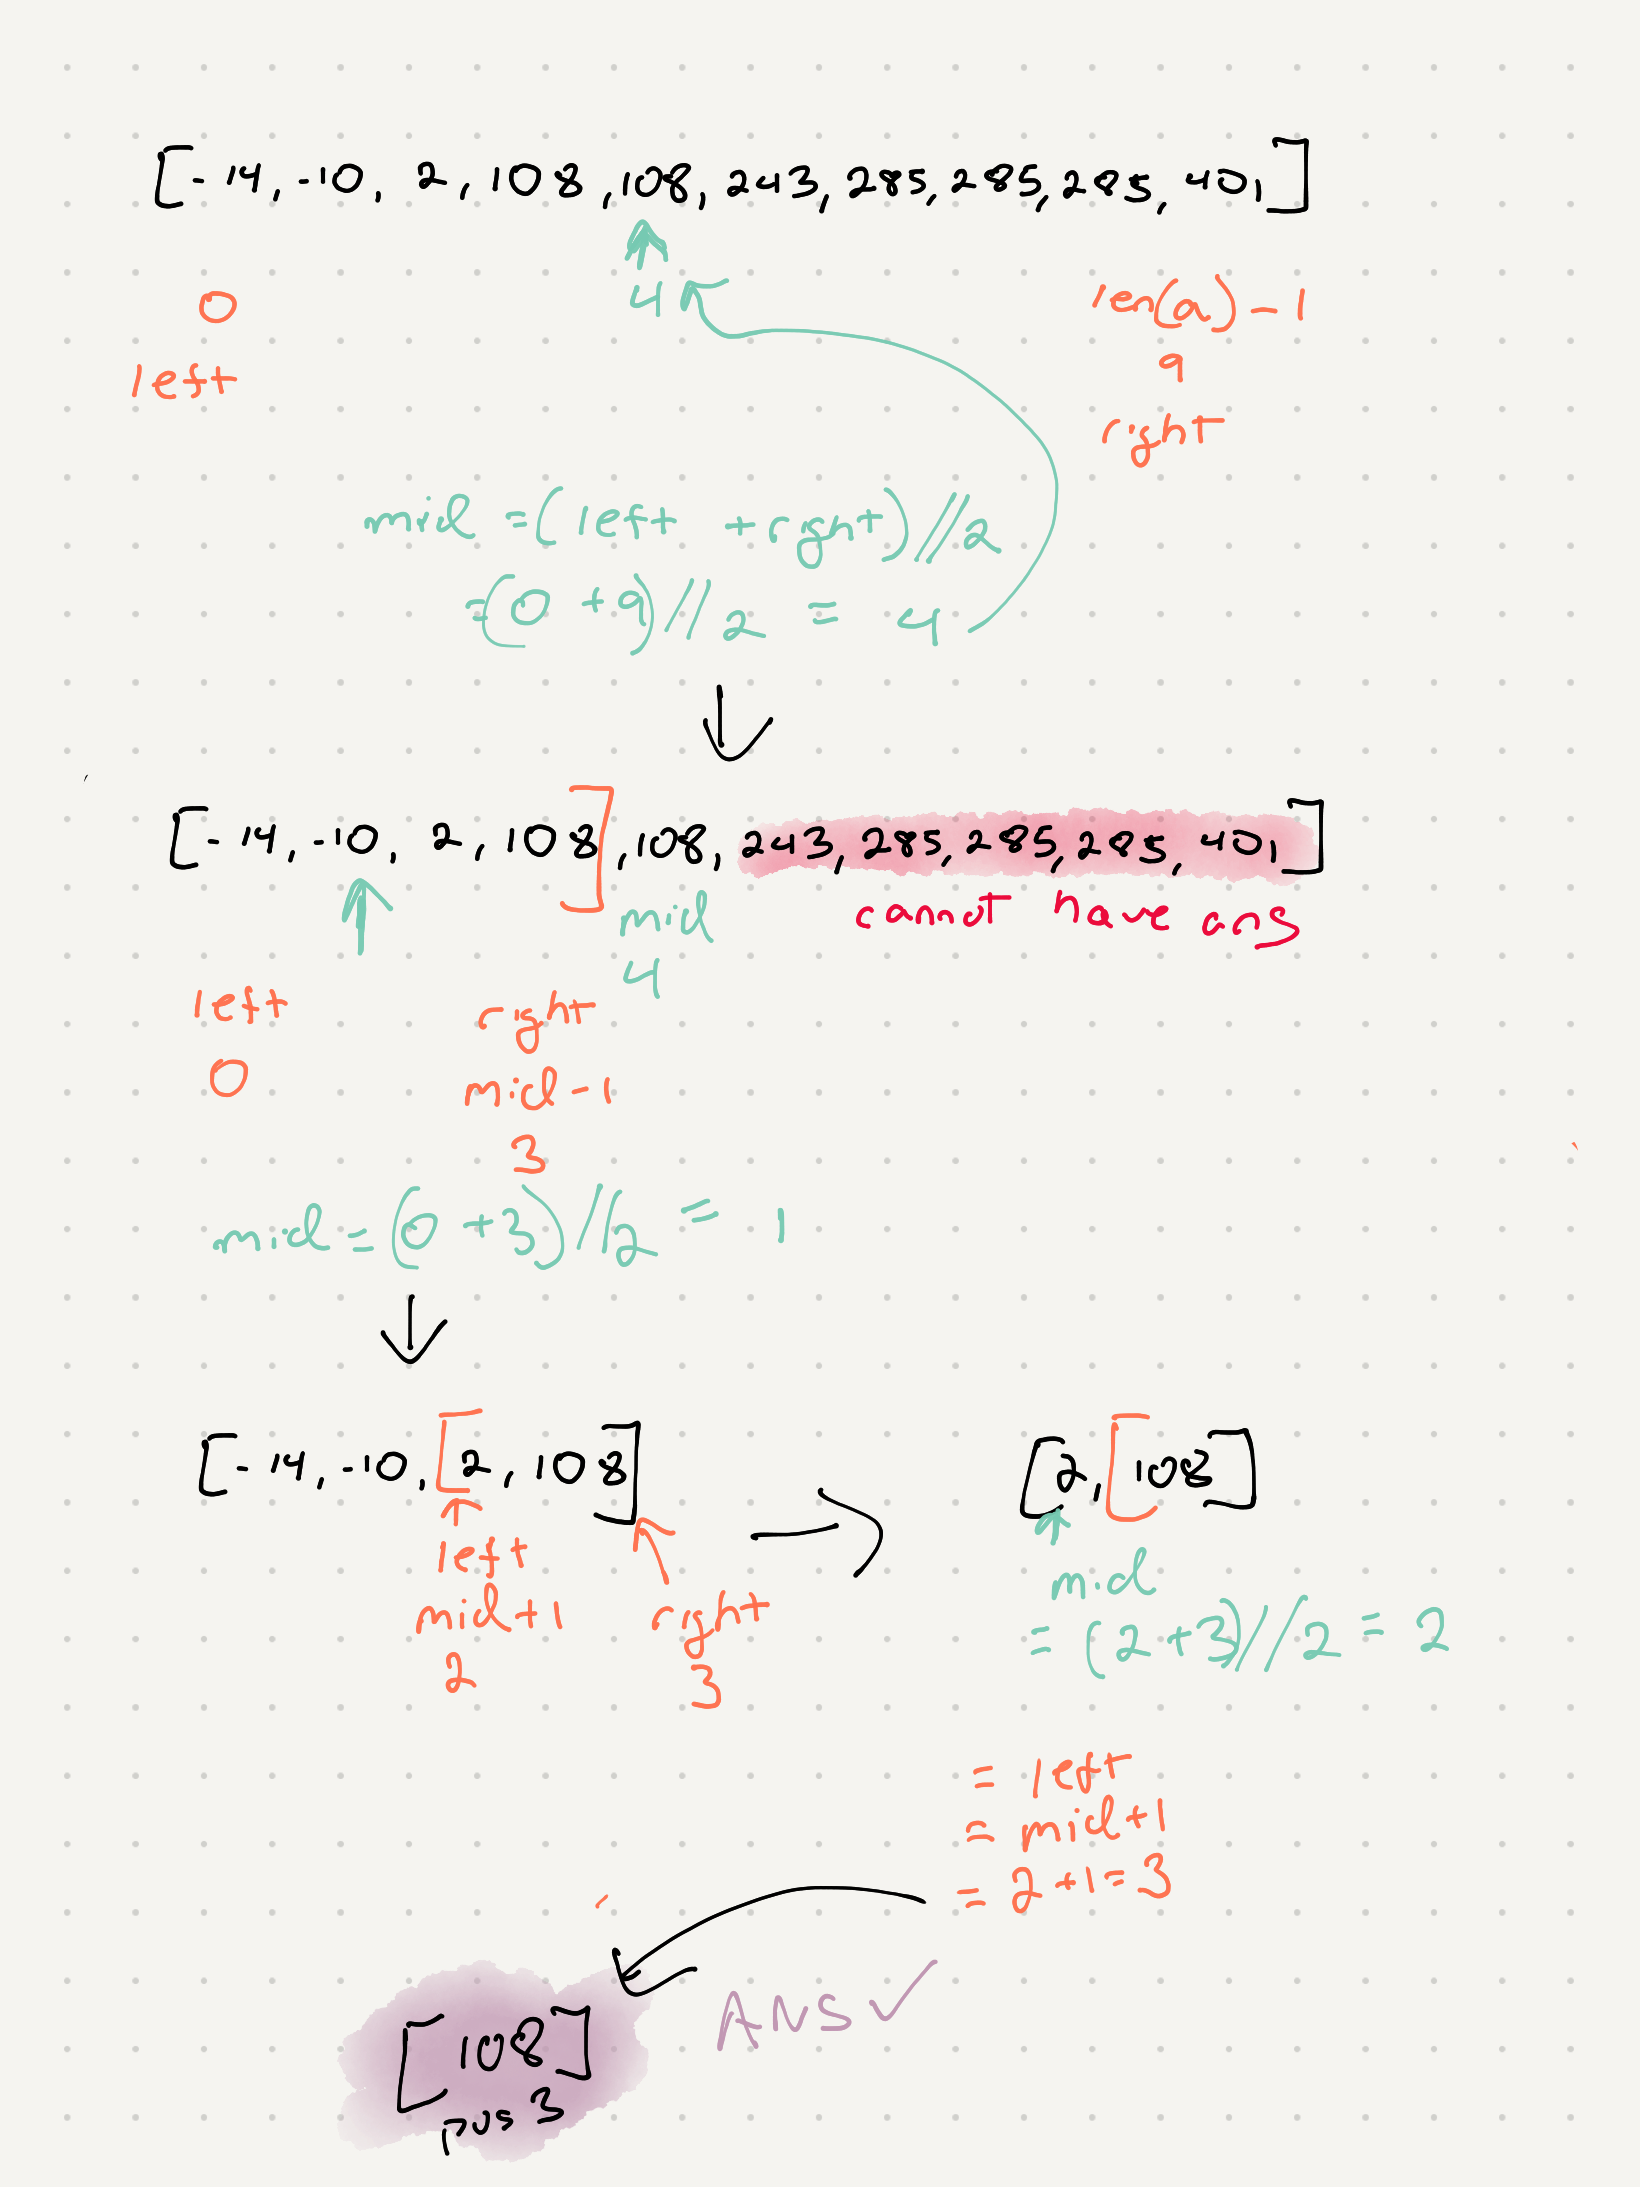 [-14, -10, 2, 108, 108, 243, 285, 285, 285, 401]
0
4
len(a)-1
left
9
right
mid = (left + right)//2
=(0 + 9)//2 = 4
[-14, -10, 2, 108], 108, 243, 285, 285, 285, 401]
mid
cannot have ans
4
left
right
0
mid-1
3
mid = (0 + 3)//2 = 1
[-14, -10, [2, 108]
left
mid+1
2
right
3
[2, [108]
mid
= (2+3)//2 = 2
= left
= mid+1
= 2+1=3
ANS ✓
[108]
pos 3